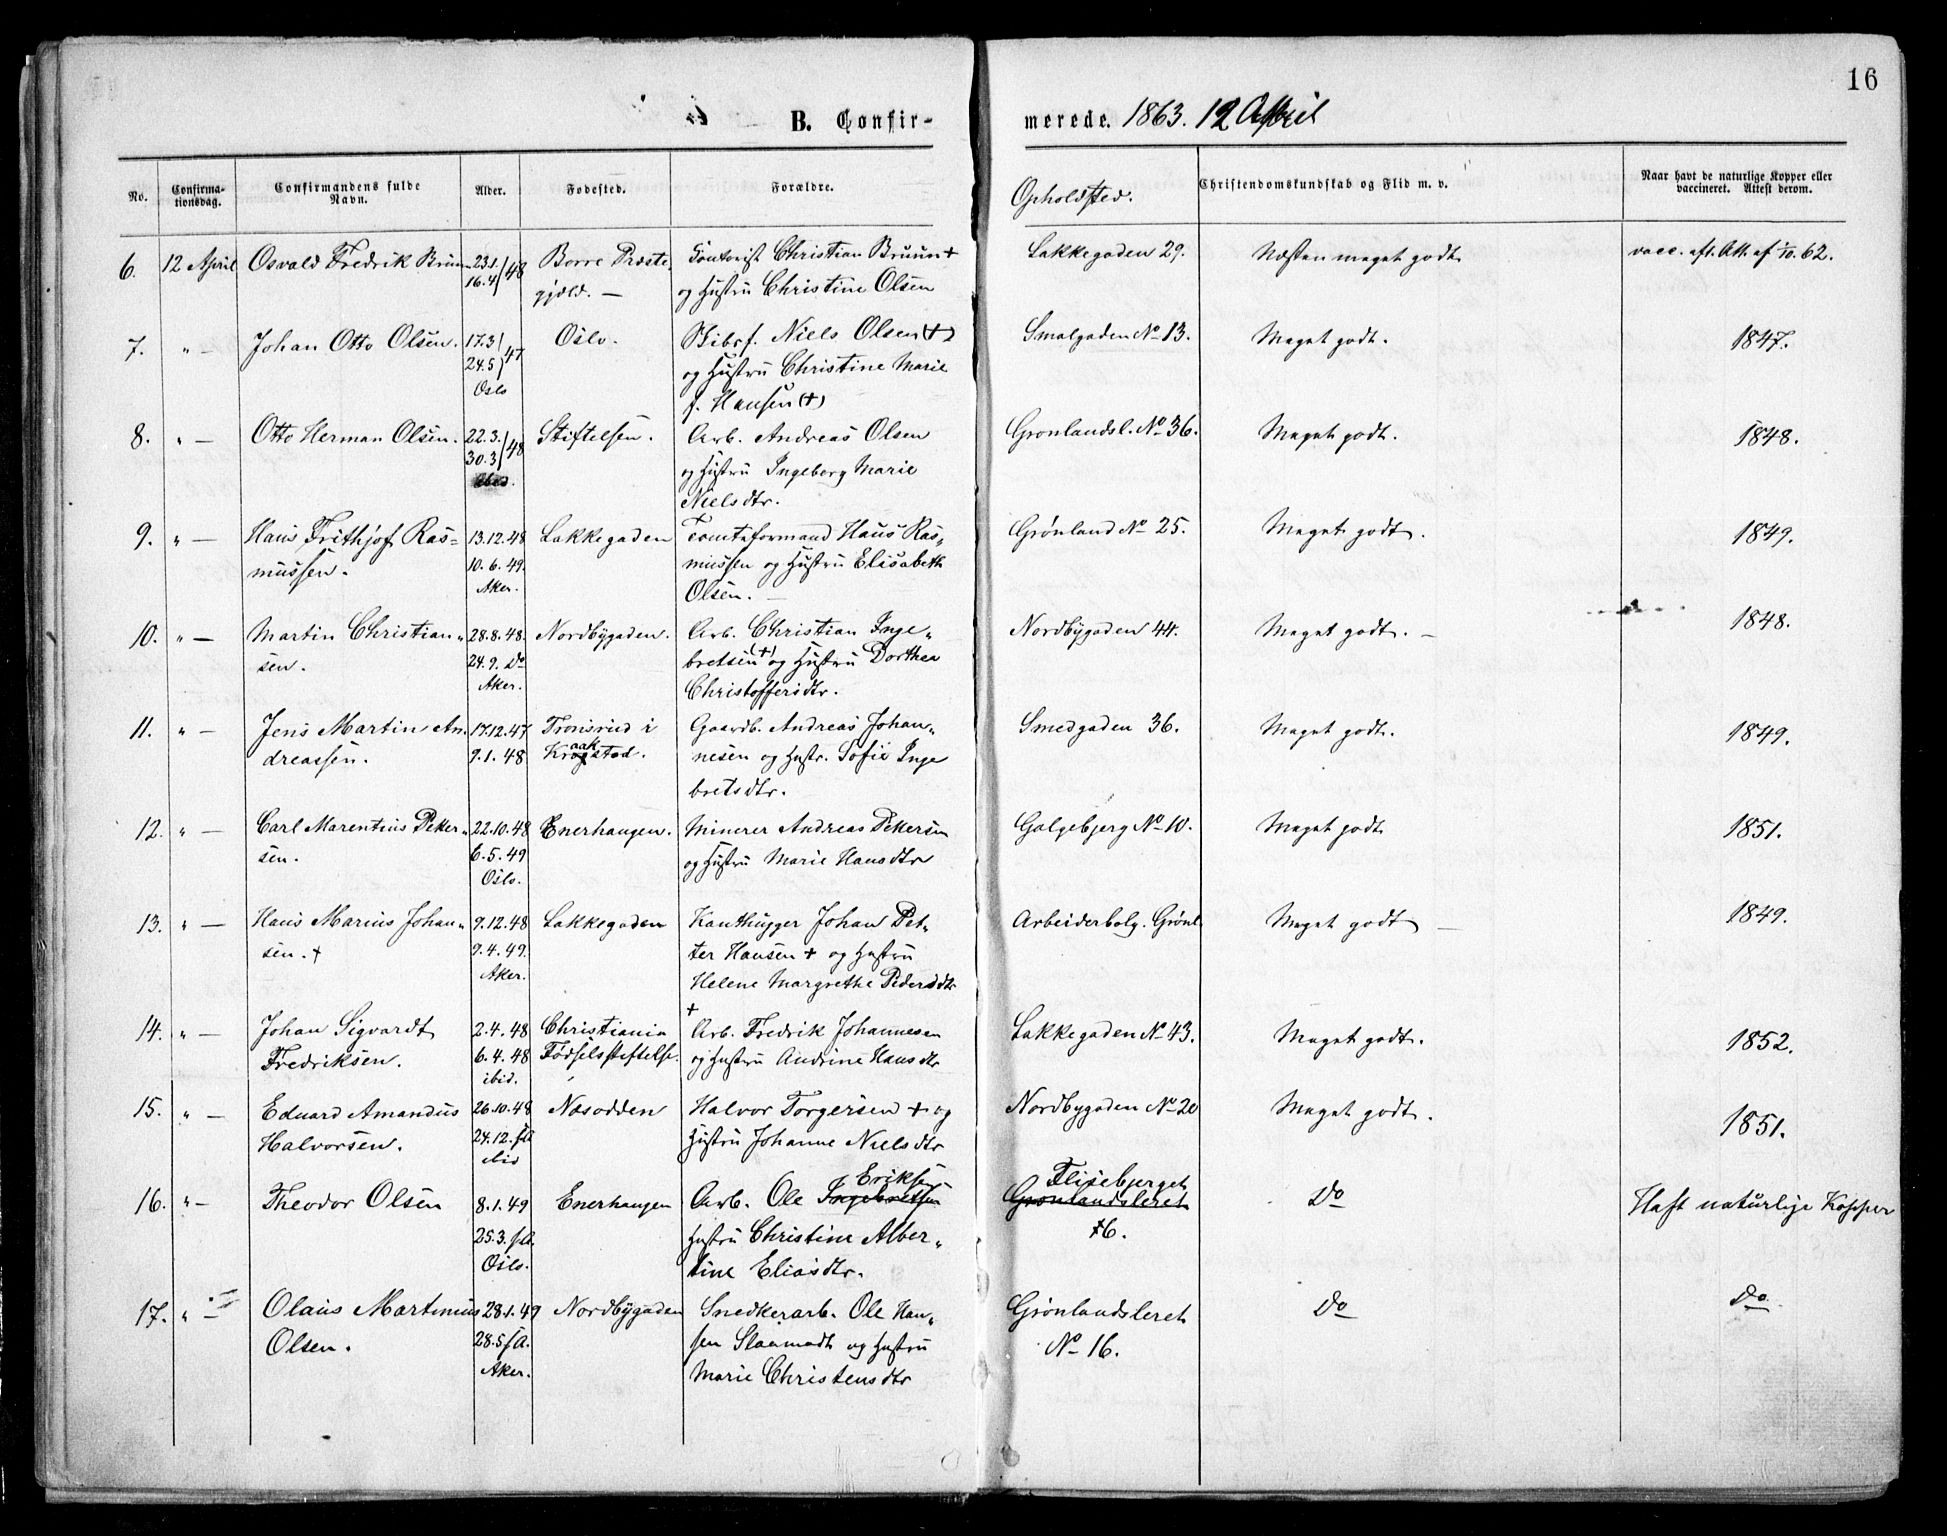 16
B. Confirmerede. 1863. 12 April
No.
Confirmationsdag.
Confirmandens fulde Navn.
Alder.
Fødested.
Forældre.
Opholdsted.
Christendomskundskab og Flid m. v.
Naar havt de naturlige Kopper eller
vaccineret. Attest derom.
6. 12 April Osvald Fredrik Bruun 23.1. 16.4 48 Borre Præste Contorist Christian Bruun + Lakkegaden 29. Næsten meget godt vacc. aft. Att. af 1/10. 62.
gjæld. — og Hustru Christine Olsen
7. " — Johan Otto Olsen. 17.3 24.5 47 Oslo. Niels Olsen (+) Smalgaden No 13. Meget godt. 1847.
Oslo og Hustru Christine Marie
f. Hansen (+)
8. " — Otto Herman Olsen. 22.3. 30.3 48 Stiftelsen. Arb. Andreas Olsen Grønlandsl. No 36. Meget godt. 1848.
og Hustru Ingeborg Marie
Nielsdtr.
9. " — Hans Frithjof Ras= 13.12.48 Lakkegaden Tomteformand Hans Ras= Grønland No 25. Meget godt. 1849.
mussen. 10.6.49. mussen og Hustru Elisabeth
Aker. Olsen. —
10. " — Martin Christian" 28.8.48. Nordbygaden. Arb. Christian Inge" Nordbygaden 44. Meget godt. — 1848.
sen. 24.9. Do bretsen (+) og Hustru Dorthea
Aker. Christoffersdtr.
11. " — Jens Martin An. 17.12.47 Tronsrud i Gaardb. Andreas Johan" Smedgaden 36. Meget godt. 1849.
dreassen. 9.1.48 Kraakstad. nesen og Hustr. Sofie Inge
bretsdtr.
12. " — Carl Marentius Peter" 22.10.48 Enerhaugen. Minerer Andreas Petersen Galgebjerg No 10. Meget godt 1851.
sen. 6.5.49 og Hustru Marie Hansdtr
Oslo.
13. " — Hans Marius Johan" 9.12.48 Lakkegaden Kanthugger Johan Pet" Arbeiderbolg. Grønl. Meget godt — 1849.
sen. + 9.4.49. ter Hansen + og Hustru
Aker. Helene Margrethe Pedersdtr
+
14. " — Johan Sigvardt 2.4.48 Christiania Arb. Fredrik Johannesen Lakkegaden No 43. Meget godt. 1852.
Fredriksen. 6.4.48 Fødselsstiftelse. og Hustru Andrine Hansdtr
ibid.
15. " — Eduard Amandus 26.10.48 Næsodden Halvor Torgersen + og Nordbygaden No 20 Meget godt. 1851.
Halvorsen. 24.12. Hustru Johanne Nielsdtr
ibid
16. " - Theodor Olsen 8.1.49 Enerhaugen Arb. Ole Ingebretsen Eriksen Grønlandsleret Flisebjerget Do Haft naturlige Kopper
25.3. Hustru Christine Alber" 6.
Oslo. tine Eliasdtr.
17. " — Olaus Martinius 28.1.49 Nordbygaden Snedkerarb. Ole Han" Grønlandsleret Do Do
Olsen. 28.5 sen Slaamodt og Hustru No 16.
Aker. Marie Christensdtr